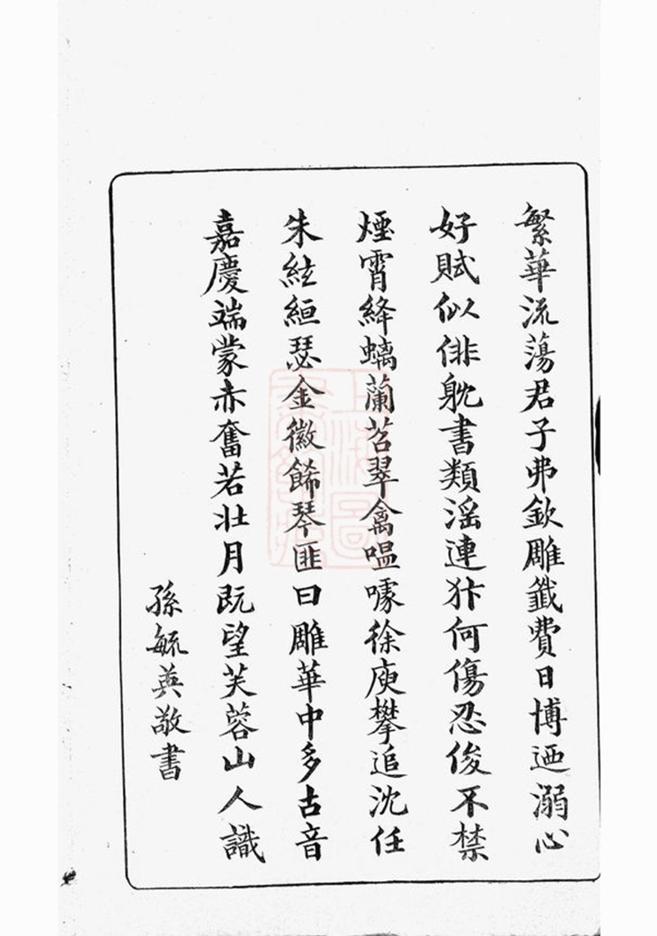 繁華流蕩君子弗欽雕鐫費日博迺溺心
好賦似俳躭書類滛連犿何傷忍俊不禁
煙霄絳螭蘭苕翠禽嗢噱徐庾攀追沈任
朱絃絙瑟金徽餙琴匪曰雕華中多古音
嘉慶端蒙赤奮若壯月既望芙蓉山人識
孫毓英敬書